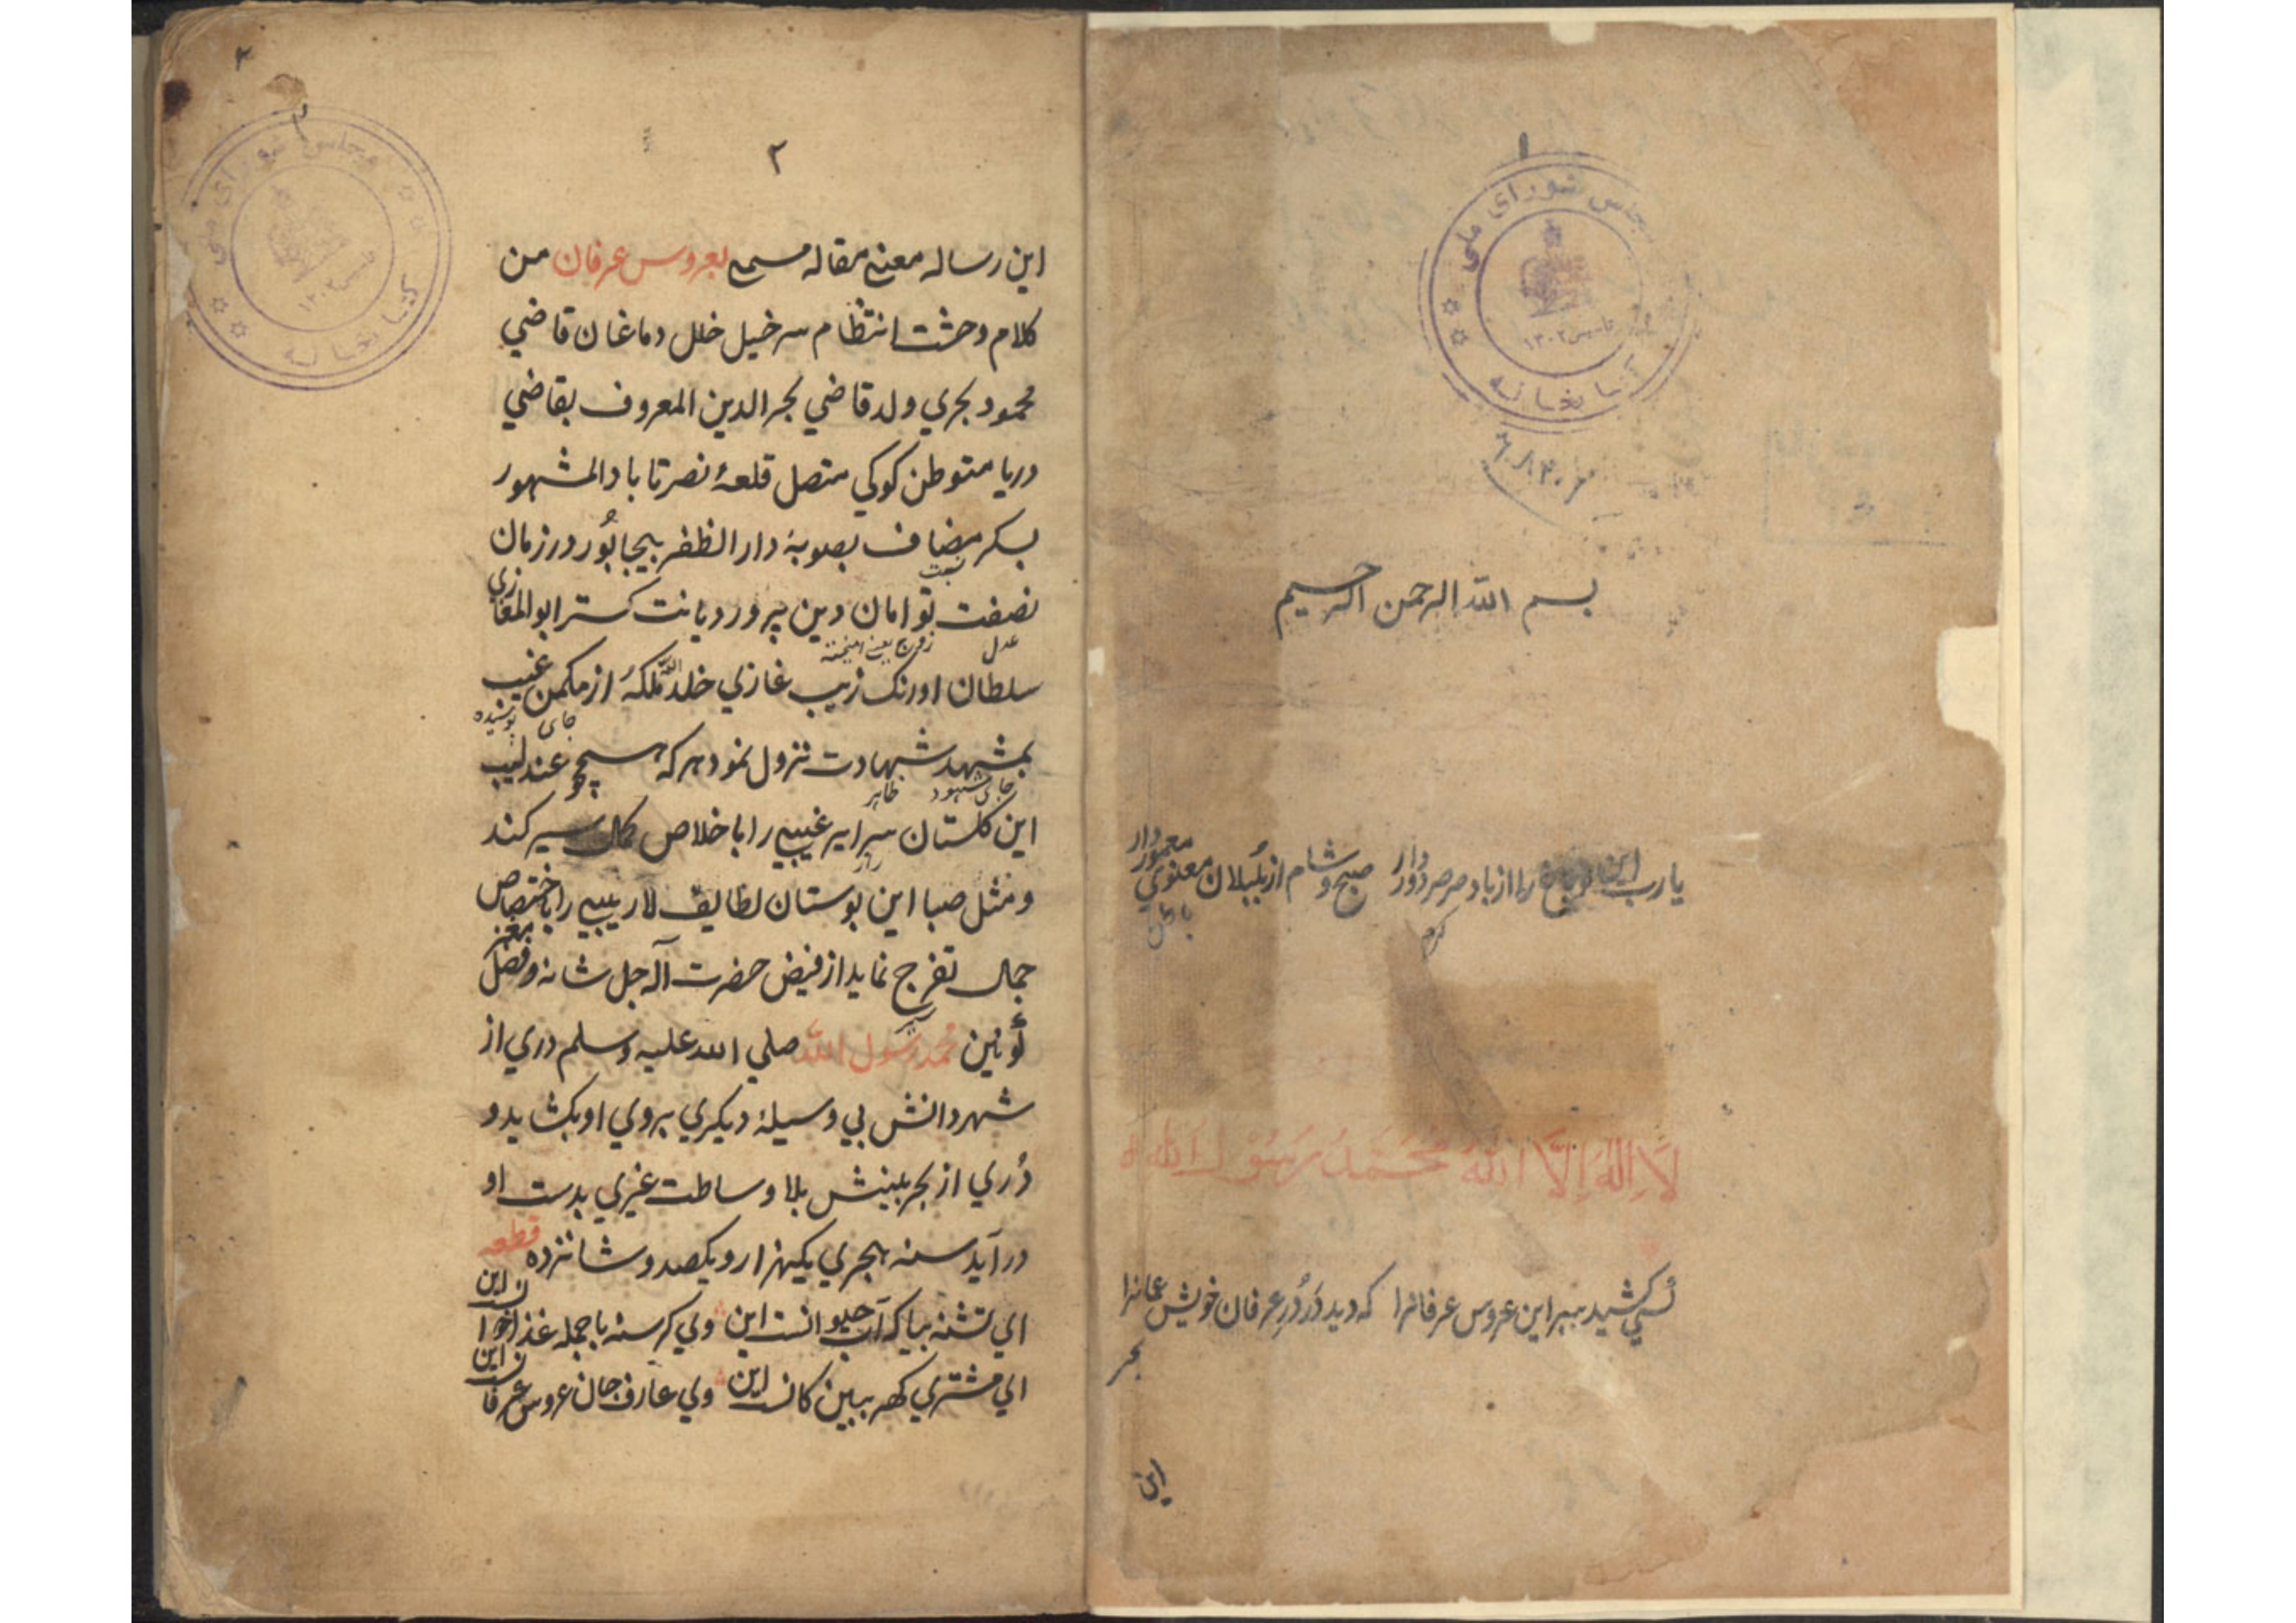 ۱
مجلس شورای ملی
تاسیس ۱۳۰۲
کتابخانه
بسم الله الرحمن الرحیم
یارب این باغ را از باد صرصر دور دار صبح و شام از بلبلان معنوي معمور دار
لَا اِلٰهَ اِلَّا اللّٰهُ مُحَمَّدٌ رَسُوْلُ اللّٰه
که دید دُرّ دُرِ عرفان خویش عمانرا
بحر
این
۲
۲
مجلس شورای ملی
تاسیس ۱۳۰۲
کتابخانه
این رساله معنے مقاله مسمے بعروس عرفان من
کلام وحشت انتظام سرخیل خلل دماغان قاضي
محمود بحري ولد قاضي بحر الدین المعروف بقاضي
دریا متوطن کوکي متصل قلعهٔ نصرتاباد المشهور
بسکر مضاف بصوبهٔ دار الظفر بیجاپُور در زمان
نصفت تو امان دین پرور دیانت کستر ابو المغازي
عدل
سلطان اورنک زیب غازي خلد الله ملکهُ از مکمن غیب
جای پوشیده
بمشهد شهادت نزول نمود هر که همچو عندلیب
جای شهود ظاهر
این کلستان سرایر غیبي را باخلاص کمال سیر کند
راز
و مثل صبا این بوستان لطایف لاریبي را باختصاص
جمال تفرج نماید از فیض حضرت اله جل شانه و فضل
محمد رسول الله صلي الله علیه وسلم دري از
شهر دانش بي وسیلهٔ دیکري بروي او بکشاید و
دُري از بحر بینش بلا وساطت غیري بدست او
در آید سنه هجري یکهزار و یکصد و شانزده قطعه
اي تشنه بیا که آب حیوانست این وي کرسنه با جمله غذا خوانست این
اي مشتري کهر ببین کانست این وي عارف جان عروس عرفانست این